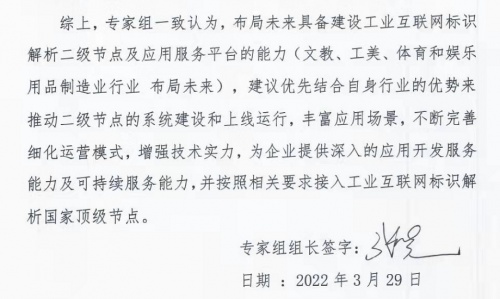 综上，专家组一致认为，布局未来具备建设工业互联网标识
解析二级节点及应用服务平台的能力（文教、工美、体育和娱乐
用品制造业行业 布局未来），建议优先结合自身行业的优势来
推动二级节点的系统建设和上线运行，丰富应用场景，不断完善
细化运营模式，增强技术实力，为企业提供深入的应用开发服务
能力及可持续服务能力，并按照相关要求接入工业互联网标识解
析国家顶级节点。
专家组组长签字：
日期：2022 年 3 月 29 日